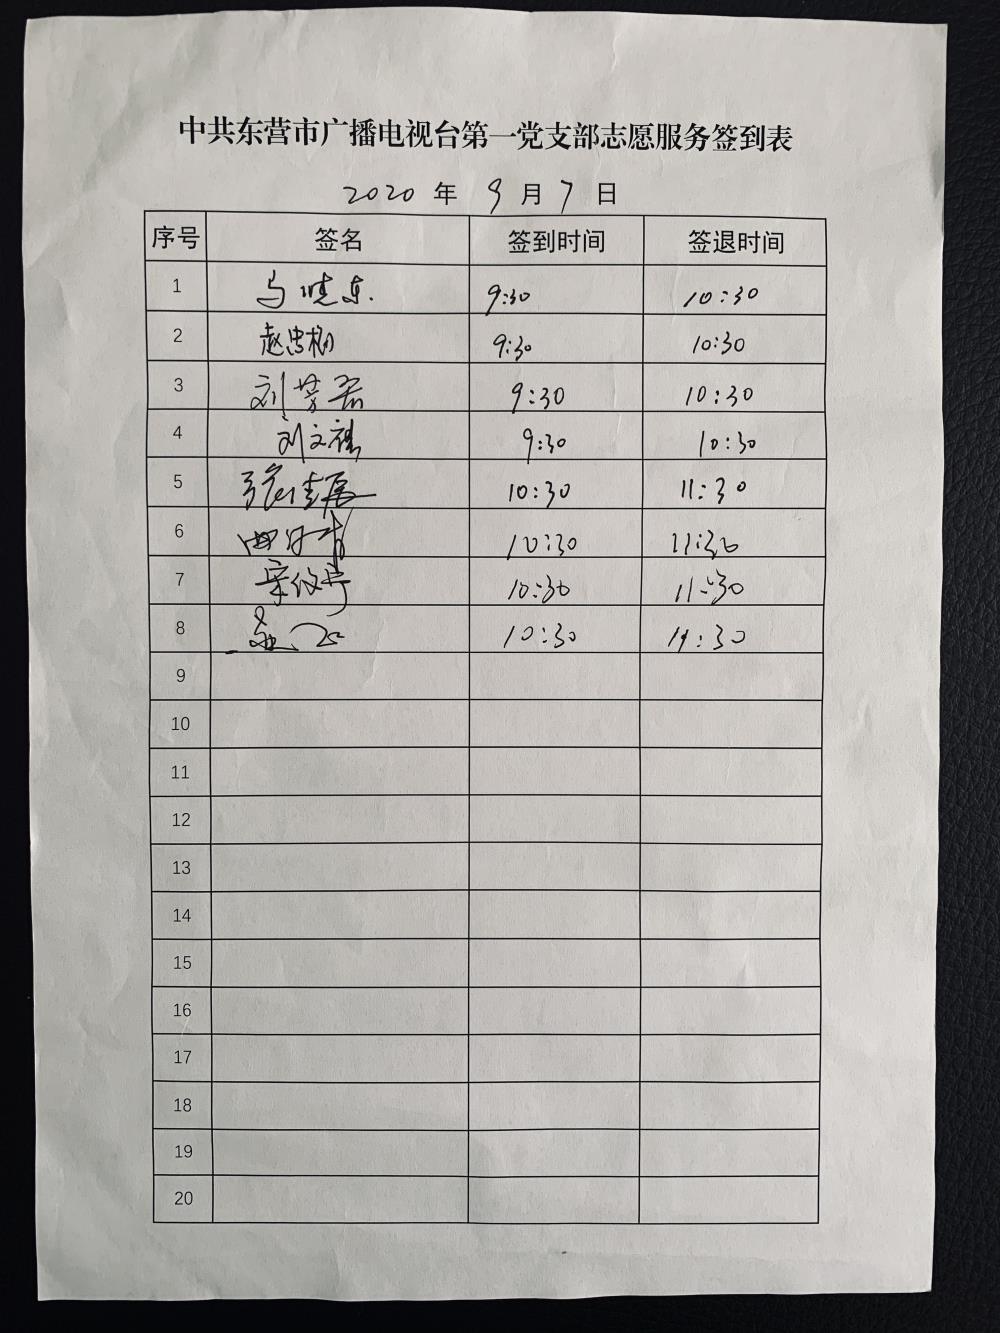 中共东营市广播电视台第一党支部志愿服务签到表
2020 年 9 月 7 日
序号 签名 签到时间 签退时间
1 马晓东 9:30 10:30
2 9:30 10:30
3 刘芳 9:30 10:30
4 刘文 9:30 10:30
5 张 10:30 11:30
6 10:30 11:30
7 10:30 11:30
8 10:30 11:30
9
10
11
12
13
14
15
16
17
18
19
20